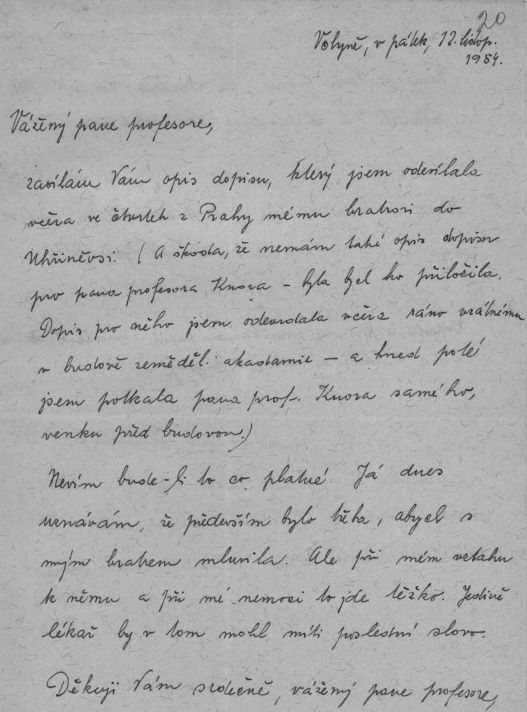 20
Volyně, v pátek, 12. listop.
1954.
Vážený pane profesore,
zasílám Vám opis dopisu, který jsem odesílala
včera ve čtvrtek z Prahy mému bratrovi do
Uhříněvsi. (A škoda, že nemám také opis dopisu
pro pana profesora Knora – byla bych ho přiložila.
Dopis pro něho jsem odevzdala včera ráno vrátnému
v budově zeměděl. akademie – a hned poté
jsem potkala pana prof. Knora samého,
venku před budovou.)
Nevím bude-li to co platné. Já dnes
uznávám, že především bylo třeba, abych s
mým bratrem mluvila. Ale při mém vztahu
k němu a při mé nemoci to jde těžko. Jedině
lékař by v tom mohl míti poslední slovo.
Děkuji Vám srdečně, vážený pane profesore,